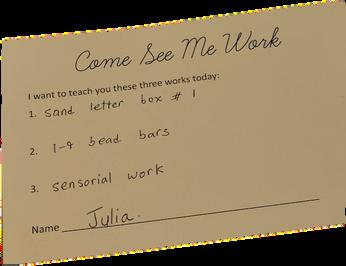 Come See Me Work
I want to teach you these three works today:
1. sand letter box # 1
2. 1-9 bead bars
3. sensorial work
Name Julia.